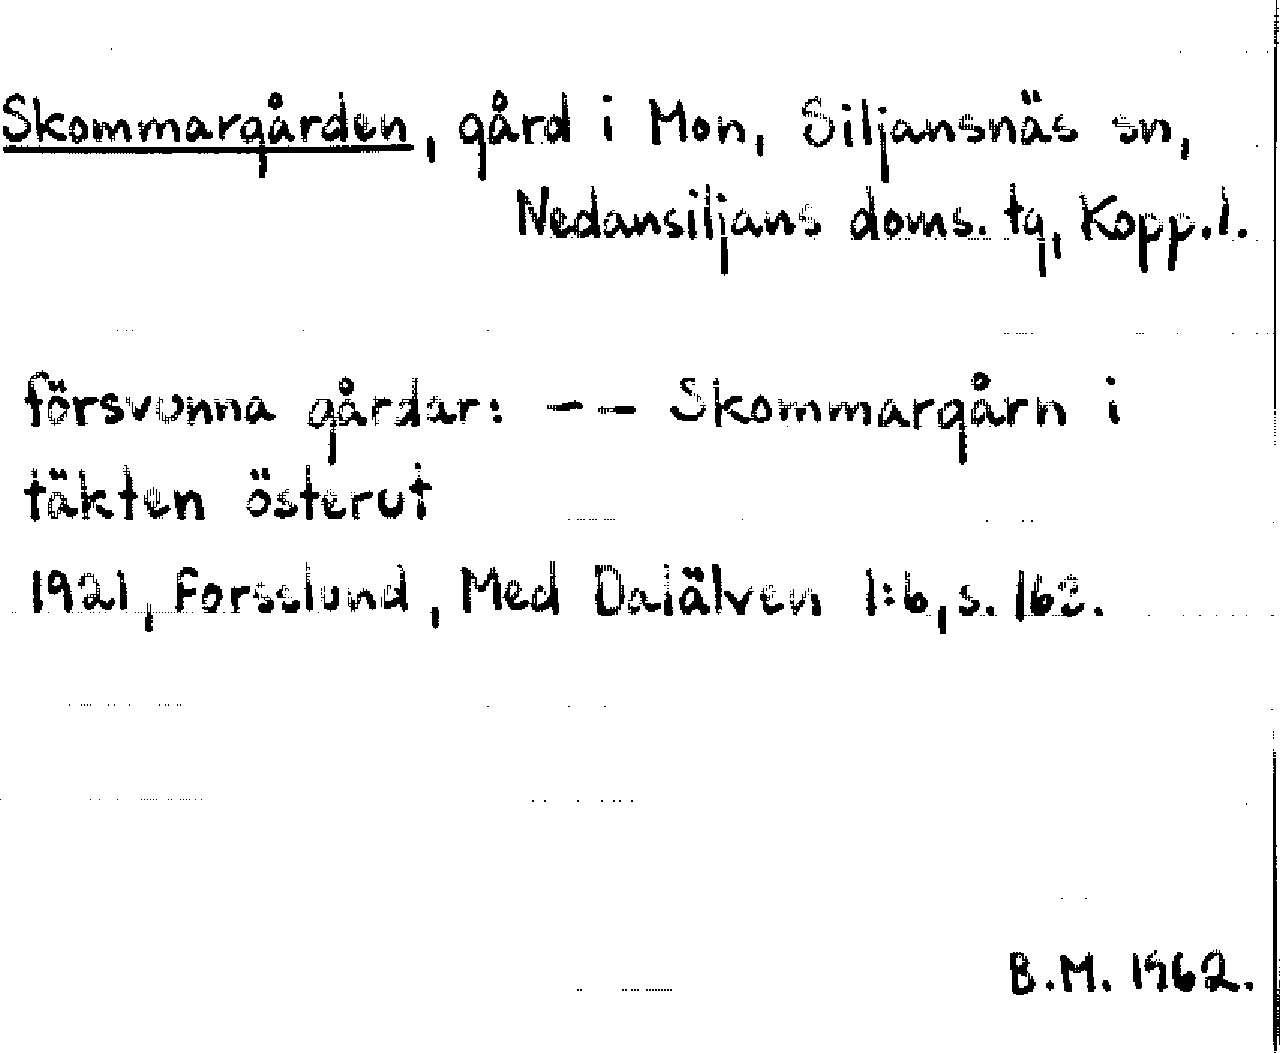 Skommargården, gård i Mon, Siljansnäs sn,
Nedansiljans doms. tg, Kopp.l.
försvunna gårdar: -- Skommargårn i
täkten österut
1921, Forsslund, Med Dalälven 1:6, s. 162.
B.M. 1962.